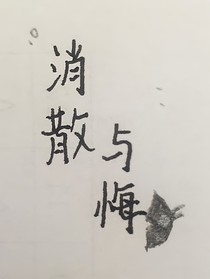 消散
与悔